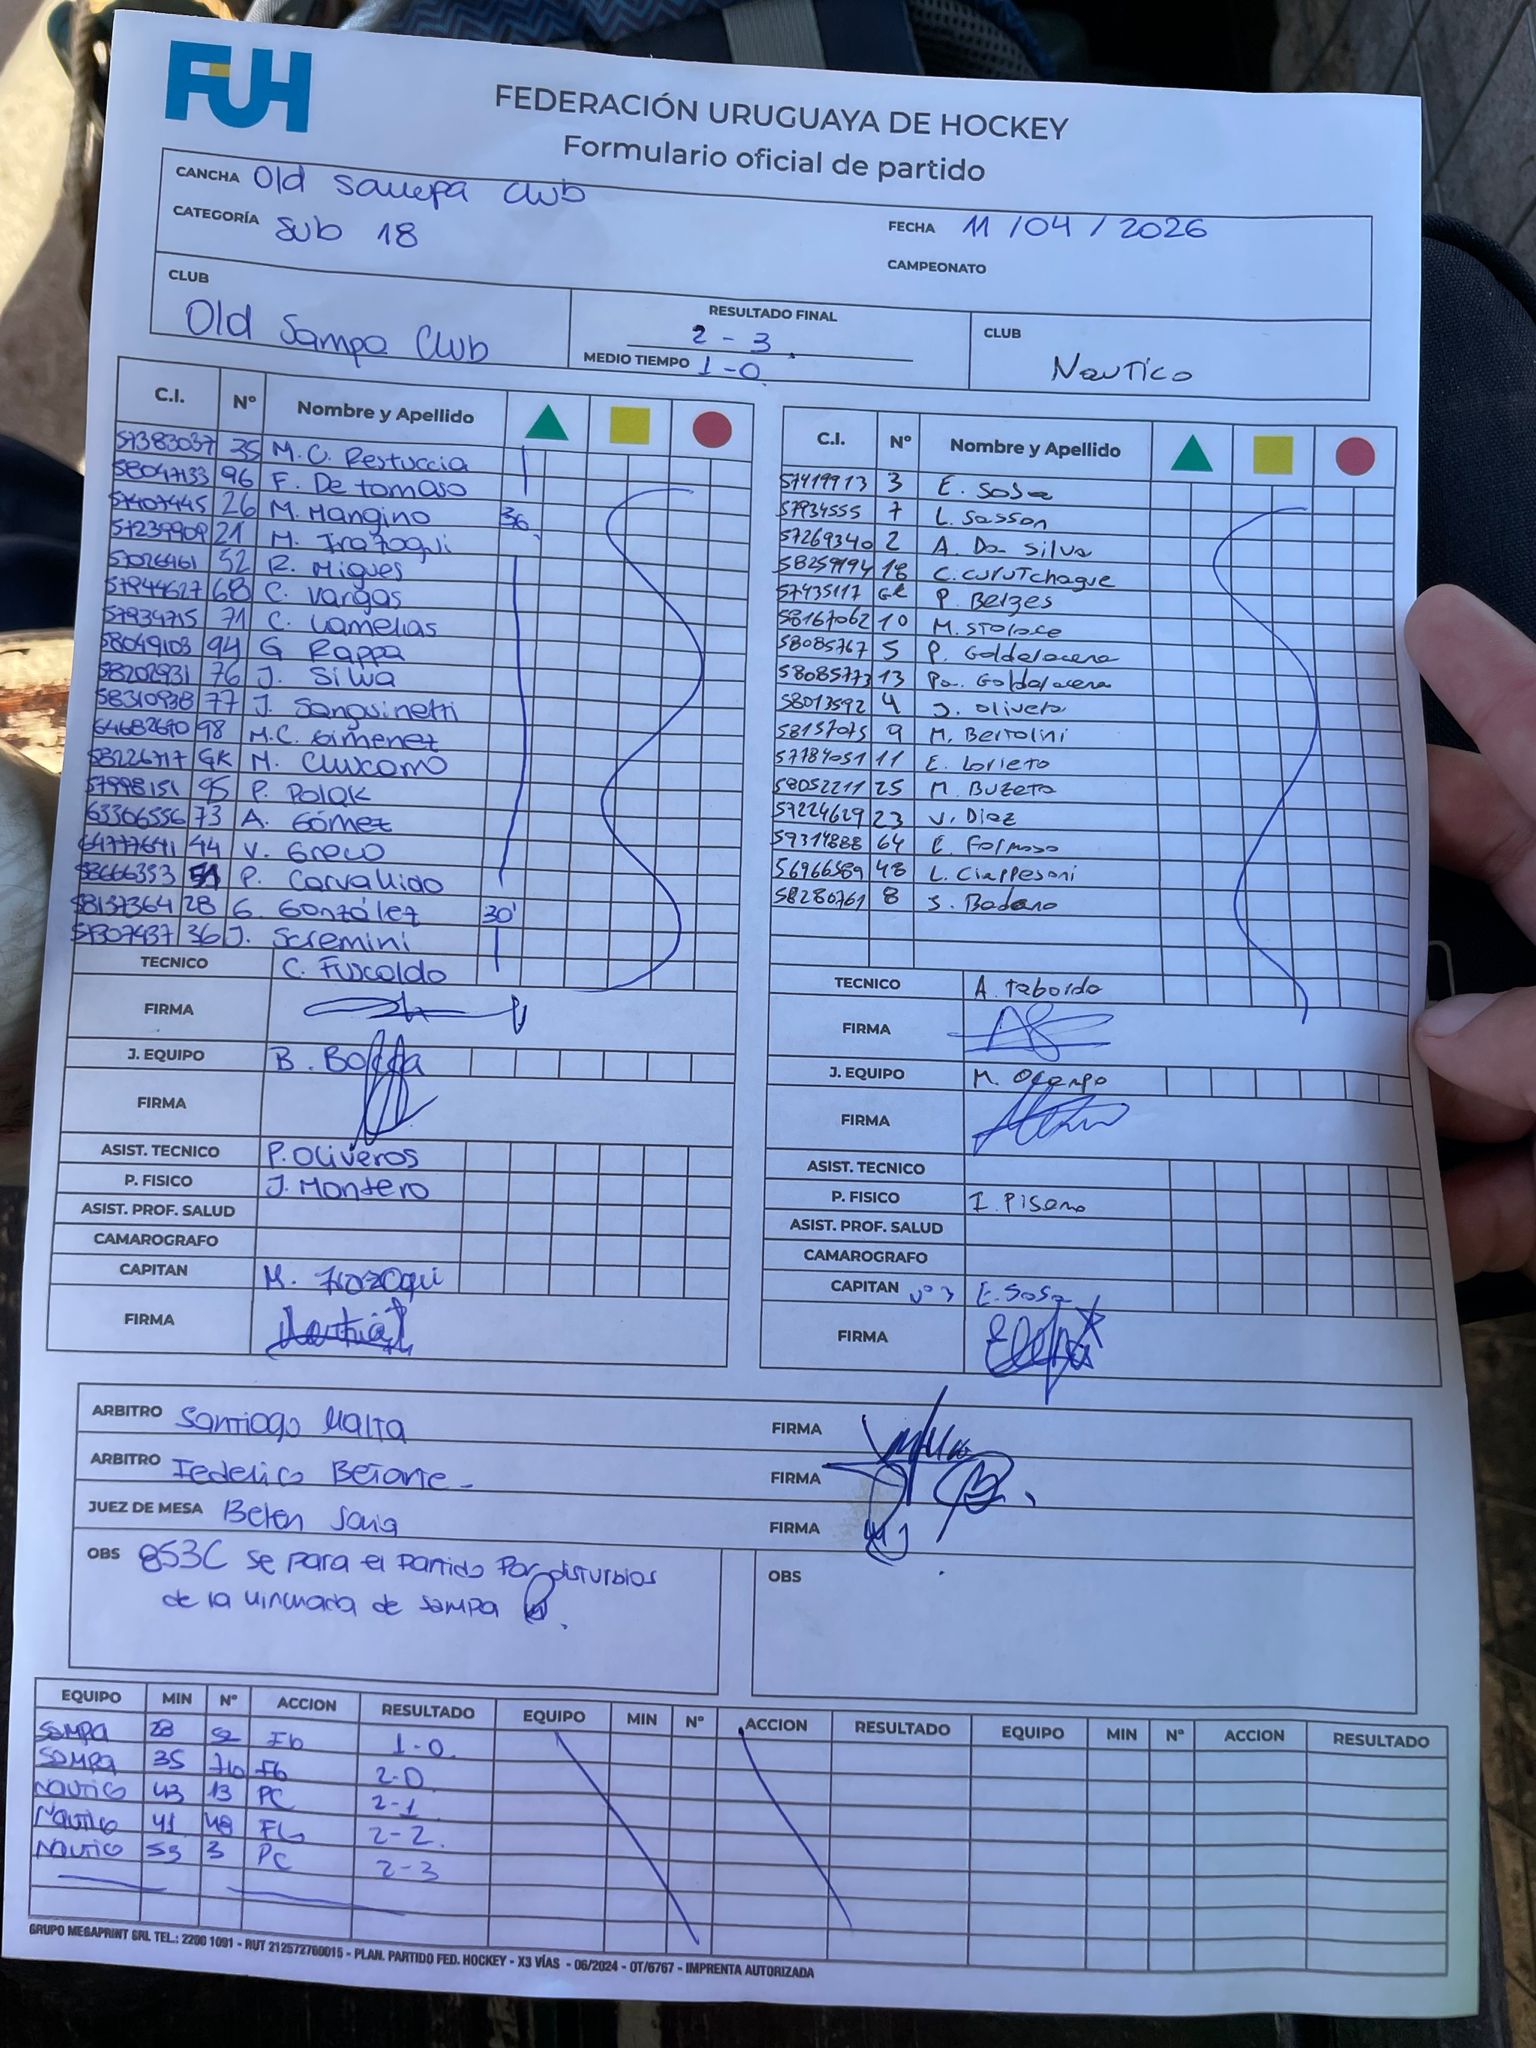 FUH
FEDERACIÓN URUGUAYA DE HOCKEY
Formulario oficial de partido
CANCHA Old Sampa Club
CATEGORÍA Sub 18
FECHA 11/04/2026
CAMPEONATO
CLUB Old Sampa Club
RESULTADO FINAL 2-3
MEDIO TIEMPO 1-0
CLUB Nautico
C.I. Nº Nombre y Apellido
57383037 35 M.C. Restuccia
58047133 96 F. De tomaso
57407445 26 M. Mangino 36
57239909 21 M. Irazoqui
57026461 52 R. Migues
57944627 68 C. Vargas
57934715 71 C. Lamelas
58049103 94 G Rappa
58202931 76 J. Silva
58310938 77 J. Sanguinetti
64682690 98 M.C. Gimenez
58226717 GK M. Chucomo
57998151 95 P. Polak
63306556 73 A. Gómez
64777641 44 V. Greco
58666353 51 P. Carvallido
58137364 28 G. González 30'
57307437 36 J. Scremini
TECNICO C. Fuscaldo
FIRMA
J. EQUIPO B. Boffa
FIRMA
ASIST. TECNICO P. Oliveros
P. FISICO J. Montero
ASIST. PROF. SALUD
CAMAROGRAFO
CAPITAN M. Irazoqui
FIRMA
C.I. Nº Nombre y Apellido
57419913 3 E. Sosa
57934555 7 L. Sasson
57269340 2 A. Da Silva
58259194 18 C. Curutchague
57435117 GK P. Berges
58167062 10 M. Stolace
58085767 5 P. Galdalacena
58085773 13 Pa. Galdalacena
58013592 4 J. Olivera
58157075 9 M. Bertolini
57784051 11 E. Lorieto
58052211 25 M. Buzeta
57224629 23 V. Diaz
59314888 64 E. Formoso
56966589 48 L. Ciappesoni
58280761 8 S. Badano
TECNICO A. Taborda
FIRMA
J. EQUIPO M. Ocampo
FIRMA
ASIST. TECNICO
P. FISICO I. Pisano
ASIST. PROF. SALUD
CAMAROGRAFO
CAPITAN Nº 3 E. Sosa
FIRMA
ARBITRO Santiago Malta FIRMA
ARBITRO Federico Beiarte FIRMA
JUEZ DE MESA Belen Soria FIRMA
OBS 853C se para el partido por disturbios
de la hinchada de Sampa
OBS
EQUIPO MIN Nº ACCION RESULTADO EQUIPO MIN Nº ACCION RESULTADO EQUIPO MIN Nº ACCION RESULTADO
Sampa 28 52 FG 1-0
Sampa 35 76 FG 2-0
Nautico 43 13 PC 2-1
Nautico 41 48 FG 2-2
Nautico 53 3 PC 2-3
GRUPO MEGAPRINT SRL TEL.: 2200 1091 - RUT 212572760015 - PLAN. PARTIDO FED. HOCKEY - X3 VÍAS - 06/2024 - OT/6767 - IMPRENTA AUTORIZADA